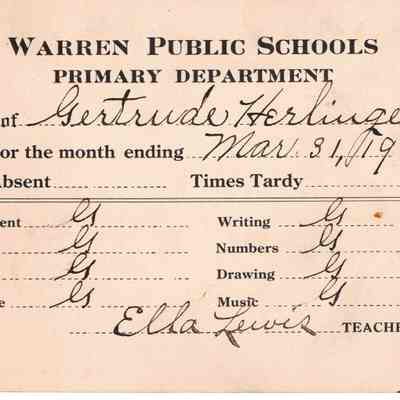 WARREN PUBLIC SCHOOLS
PRIMARY DEPARTMENT
of Gertrude Herlinge
or the month ending Mar 31, 19
Absent Times Tardy
ent G Writing G
G Numbers G
G Drawing G
e G Music G
Ella Lewis TEACHE